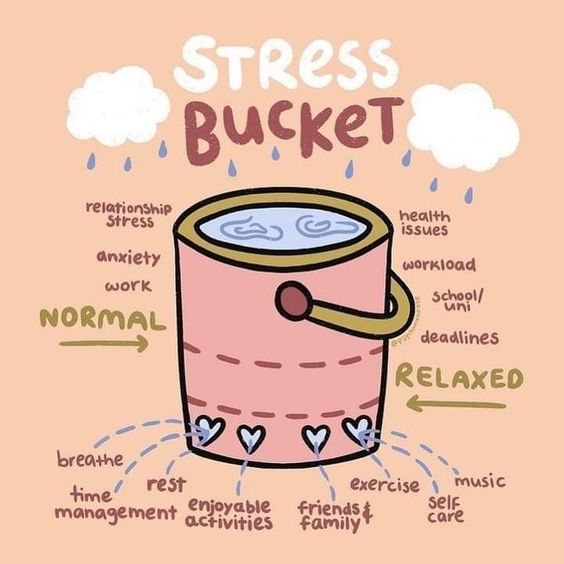 STRESS
BUCKET
relationship
stress
anxiety
work
NORMAL
health
issues
workload
school/
uni
deadlines
RELAXED
breathe
time
management
rest
enjoyable
activities
friends &
family
exercise
self
care
music